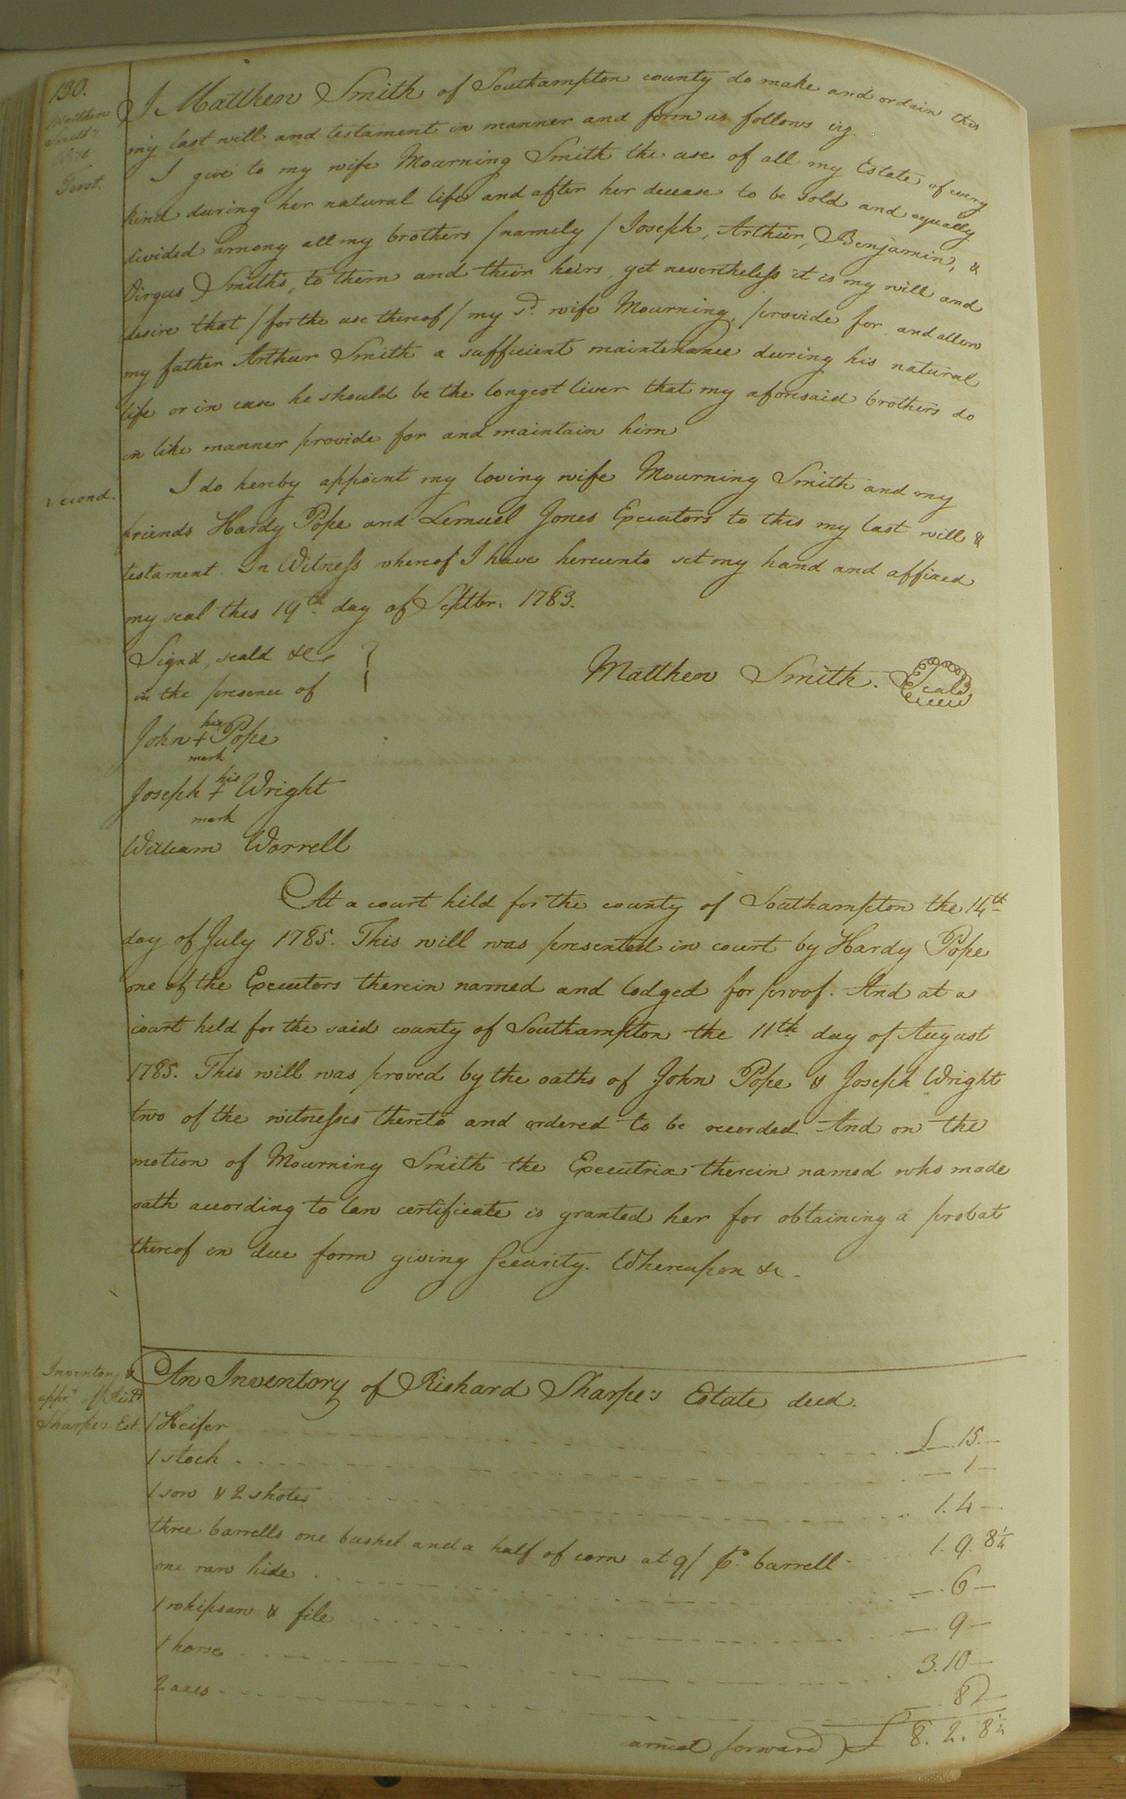 130.
Matthew
Smith's
Will
First.
I Matthew Smith of Southampton county do make and ordain this
my last will and testament in manner and form as follows viz.
I give to my wife Mourning Smith the use of all my Estate of every
kind during her natural life and after her decease to be sold and equally
divided among all my brothers /namely/ Joseph, Arthur, Benjamin, &
Pirgus Smiths, to them and their heirs, yet nevertheless it is my will and
desire that /for the use thereof/ my sd. wife Mourning, provide for and allow
my father Arthur Smith a sufficient maintenance during his natural
life or in case he should be the longest liver that my aforesaid brothers do
in like manner provide for and maintain him
second.
I do hereby appoint my loving wife Mourning Smith and my
friends Hardy Pope and Lemuel Jones Executors to this my last will &
testament. In Witness whereof I have hereunto set my hand and affixed
my seal this 19th day of Septbr. 1783.
Signd, seald &c
in the presence of
Matthew Smith. Seal
his
John + Pope
mark
his
Joseph + Wright
mark
William Worrell
At a court held for the county of Southampton the 14th
day of July 1785. This will was presented in court by Hardy Pope
one of the Executors therein named and lodged for proof. And at a
court held for the said county of Southampton the 11th day of August
1785. This will was proved by the oaths of John Pope & Joseph Wright
two of the witnesses thereto and ordered to be recorded. And on the
motion of Mourning Smith the Executrix therein named who made
oath according to law certificate is granted her for obtaining a probat
thereof in due form giving security. Whereupon &c.
Inventory &
appt. of Richd.
Sharpe's Est.
An Inventory of Richard Sharpe's Estate deed.
1 Heifer £ . 15 . —
1 stock — 1 —
1 sow & 2 shotes 1. 4 —
three barrells one bushel and a half of corn at 9/ pr. barrell 1. 9. 8¼
one raw hide — . 6 —
1 whipsaw & file — 9 —
1 horse 3. 10 —
2 axes — . 8
forward £ 8. 2. 8¼